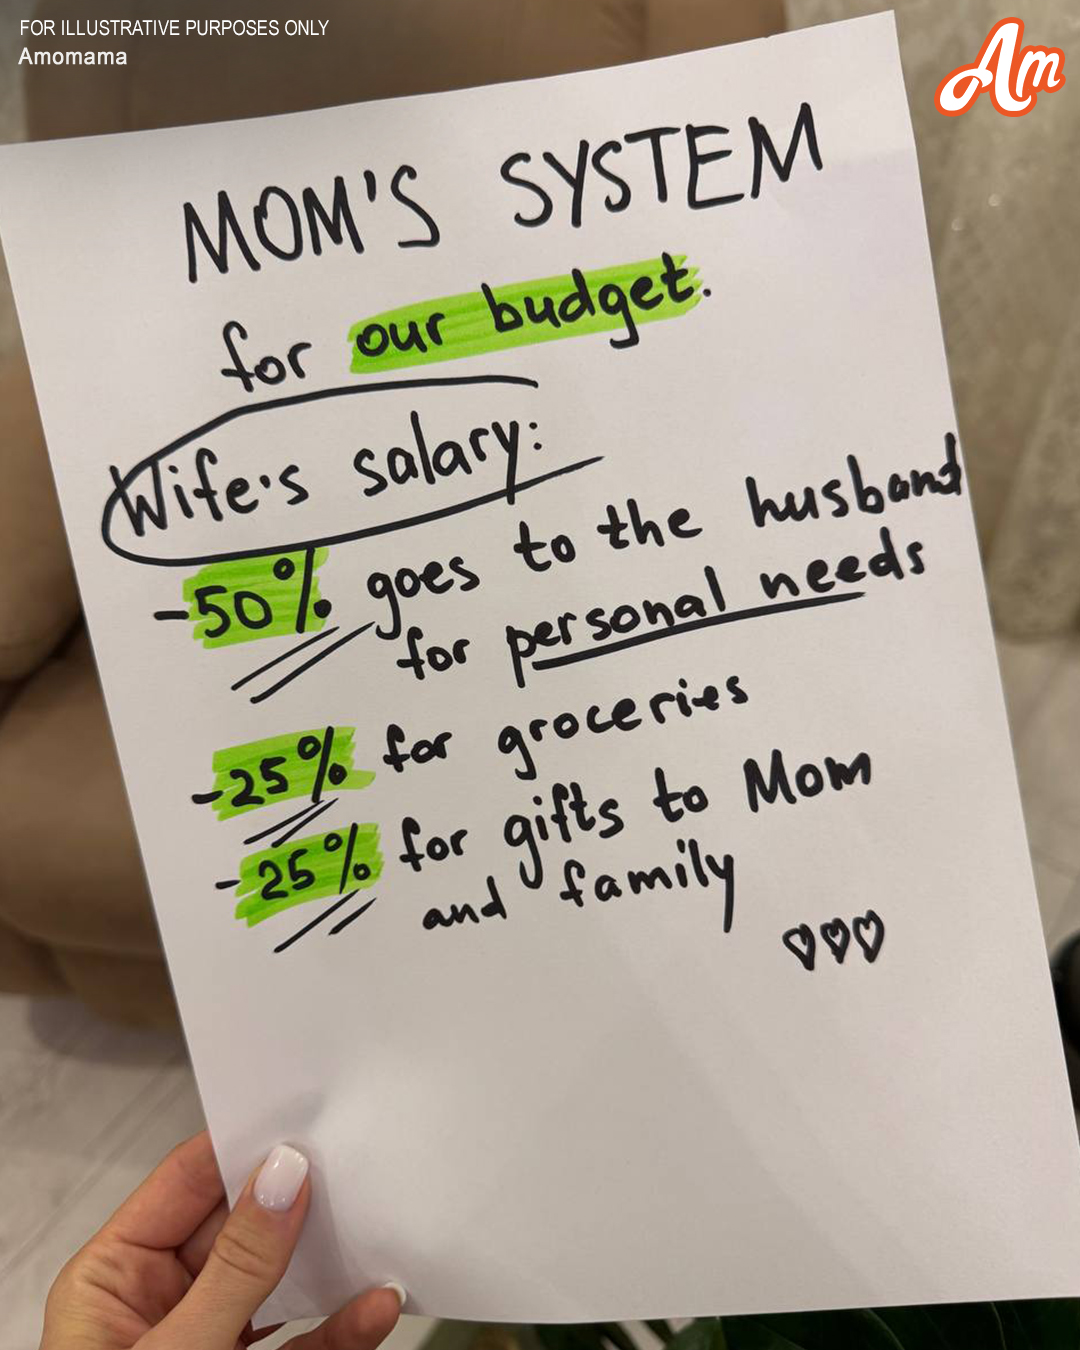 FOR ILLUSTRATIVE PURPOSES ONLY
Amomama
Am
MOM'S SYSTEM
for our budget.
Wife's salary:
-50% goes to the husband
for personal needs
-25% for groceries
-25% for gifts to Mom
and family